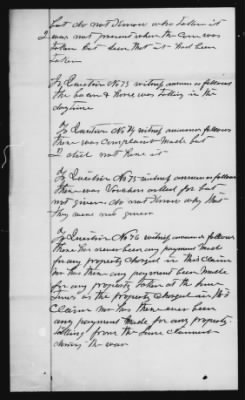 but do not know who taken it
I was not present when the Corn was
taken but seen that it had been
taken
To Question No 73 witness answers as follows
the Corn & Horse was taking in the
daytime
To Question No 74 witness answers as follows
there was Complaint Made but
I did not hear it
To Question No 75 witness answers as follows
there was Voucher asked for but
not given do not know why that
they were not given
To Question No 76 witness answers as follows
there has never been any payment Made
for any property charged in this Claim
nor has there any payment been Made
for any property taken at the Same
times as the property charged in this
Claim nor has there ever been
any payment Made for any property
taking from the Same Claimant
during the war